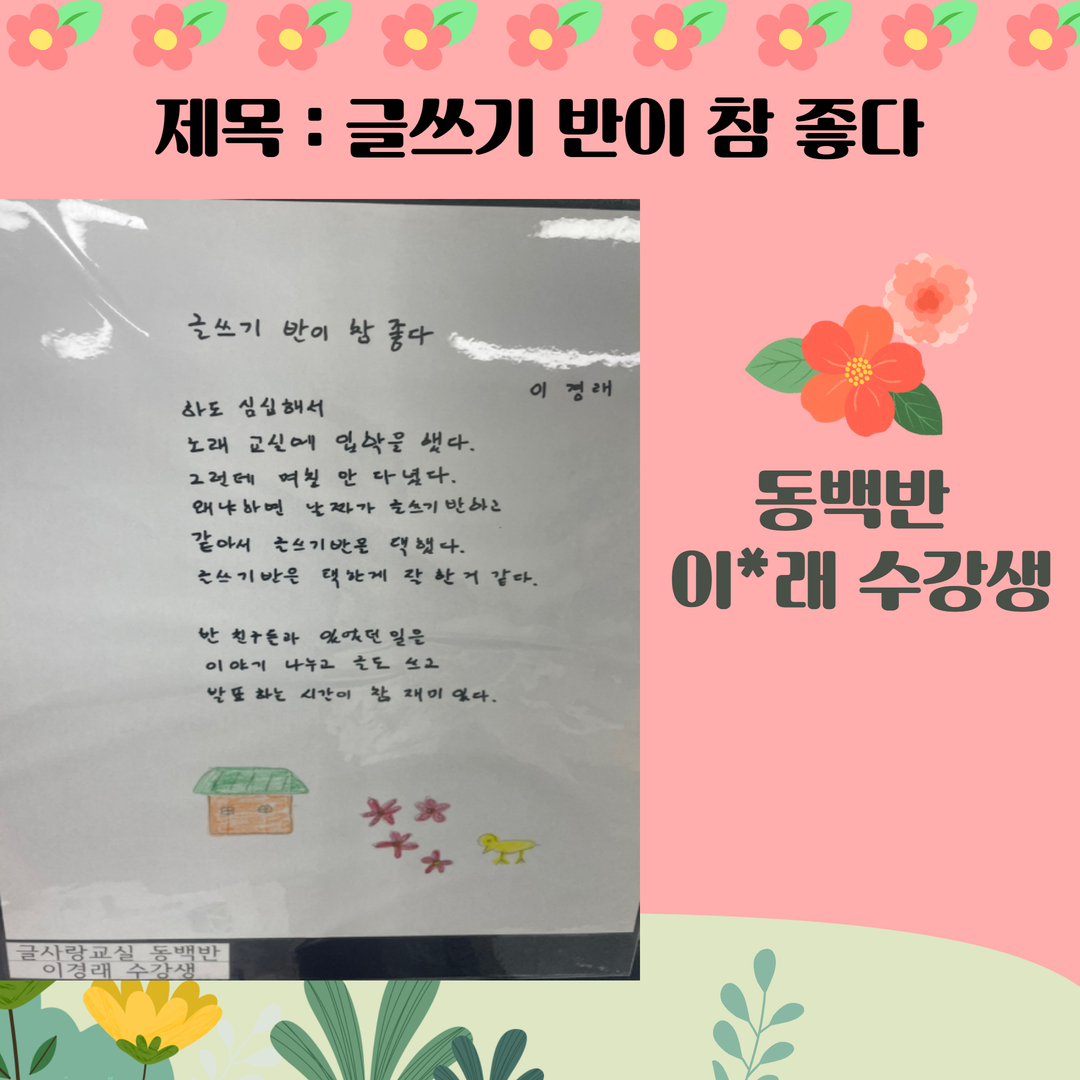 제목 : 글쓰기 반이 참 좋다
글쓰기 반이 참 좋다
이 경래
하도 심심해서
노래 교실에 입학을 했다.
그런데 며칠 안 다녔다.
왜냐하면 날짜가 글쓰기반하고
같아서 글쓰기반을 택했다.
글쓰기반을 택하게 잘 한 거 같다.
반 친구들과 있었던 일을
이야기 나누고 글도 쓰고
발표 하는 시간이 참 재미 있다.
글사랑교실 동백반
이경래 수강생
동백반
이*래 수강생